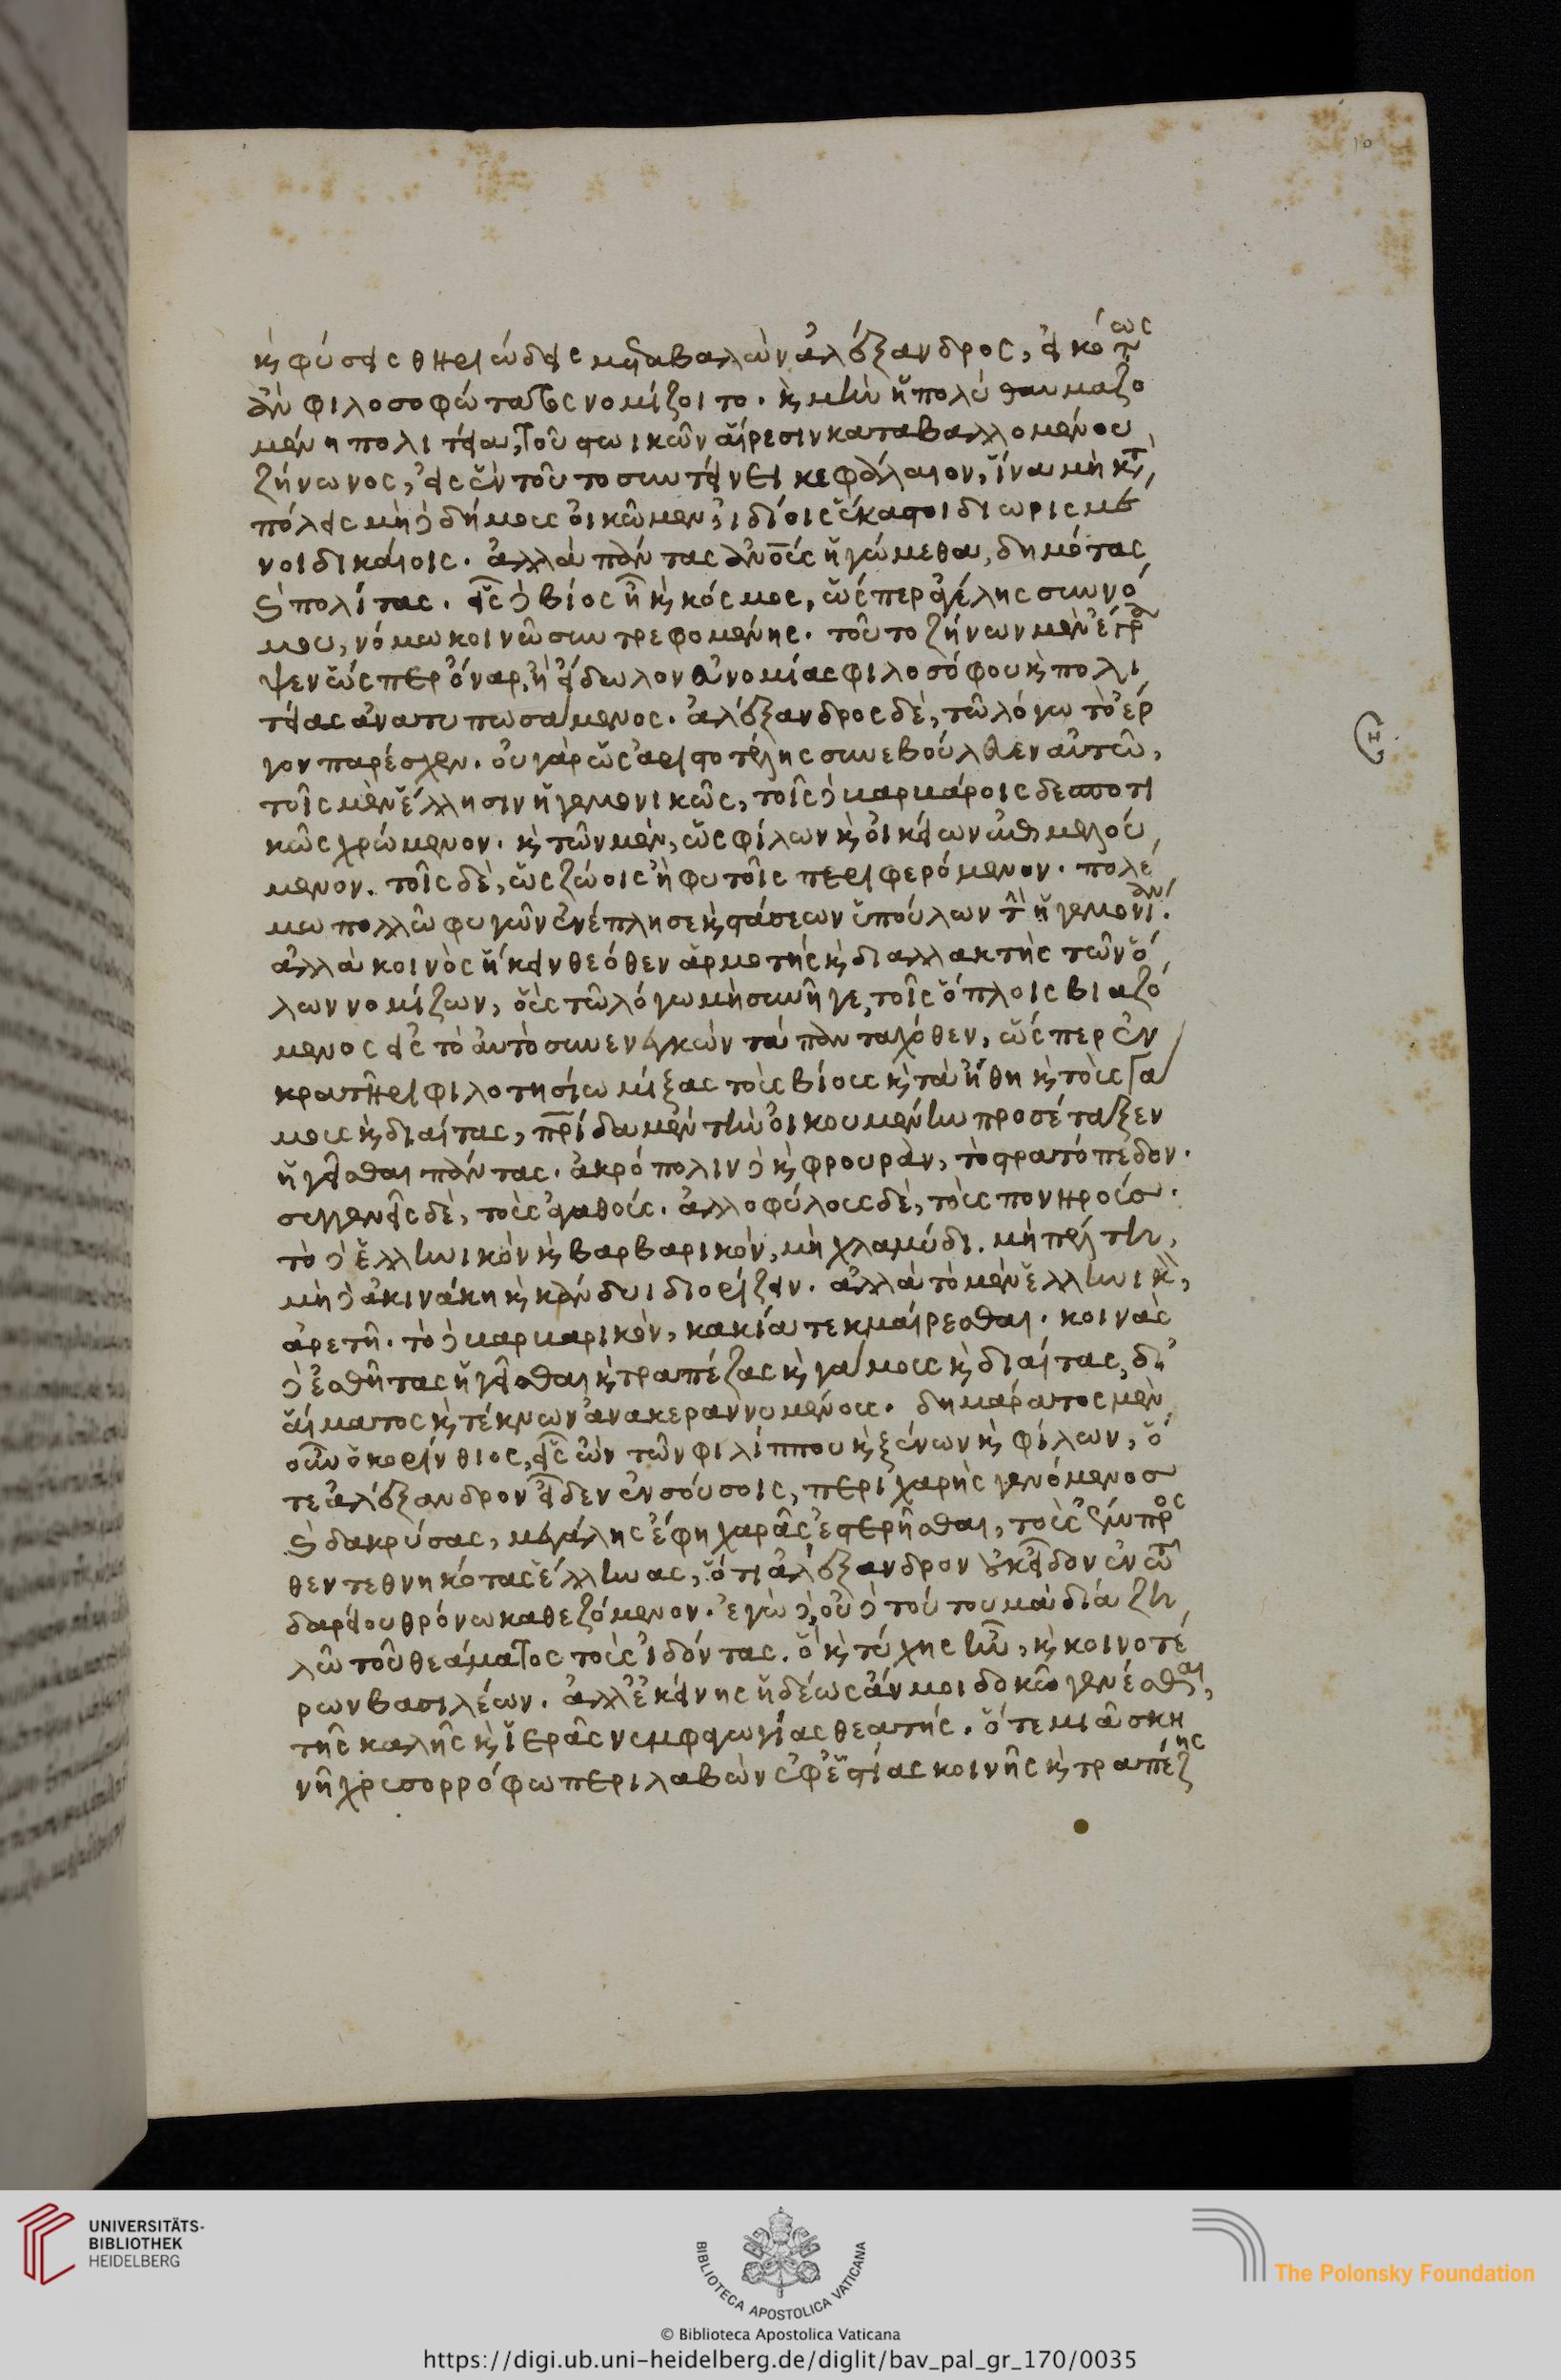 10
καὶ φύσεις θηριώδεις μεταβαλὼν ἀλέξανδρος, εἰκότως
ἂν φιλοσοφώτατος νομίζοιτο. καὶ μὴν ἡ πολὺ θαυμαζο
μένη πολιτεία, τοῦ στωικῶν αἵρεσιν καταβαλλομένου
ζήνωνος, εἰς ἓν τοῦτο συντείνει κεφάλαιον, ἵνα μὴ κατὰ
πόλεις μὴ δὲ δήμους οἰκῶμεν, ἰδίοις ἕκαστοι διωρισμέ
νοι δικαίοις. ἀλλὰ πάντας ἀνους ἡγώμεθα, δημότας
καὶ πολίτας. εἷς δὲ βίος ἦ καὶ κόσμος, ὥσπερ ἀγέλης συννό
μου, νόμω κοινῶ συντρεφομένης. τοῦτο ζήνων μὲν ἔγρα
ψεν ὥσπερ ὄναρ, ἢ εἴδωλον εὐνομίας φιλοσόφου καὶ πολι
τείας ἀνατυπωσάμενος. ἀλέξανδρος δὲ, τῶ λόγω τὸ ἔρ
γον παρέσχεν. οὐ γὰρ ὡς ἀριστοτέλης συνεβούλευεν αὐτῶ,
τοῖς μὲν ἕλλησιν ἡγεμονικῶς, τοῖς δὲ βαρβάροις δεσποτι
κῶς χρώμενον. καὶ τῶν μὲν, ὡς φίλων καὶ οἰκείων ἐπιμελού
μενον. τοῖς δὲ, ὡς ζώοις ἢ φυτοῖς περιφερόμενον. πολέ
μω πολλῶ φυγῶν ἐνέπλησε καὶ στάσεων ὑπούλων τὴν ἡγεμονίαν.
ἀλλὰ κοινὸς ἥκειν θεόθεν ἁρμοτὴς καὶ διαλλακτὴς τῶν ὅ
λων νομίζων, οὓς τῶ λόγω μὴ συνῆγε, τοῖς ὅπλοις βιαζό
μενος εἰς τὸ αὐτὸ συνενεγκὼν τὰ πανταχόθεν, ὥσπερ ἐν
κρατῆρι φιλοτησίω μίξας τοὺς βίους καὶ τὰ ἤθη καὶ τοὺς γά
μους καὶ διαίτας, πρίδα μὲν τὴν οἰκουμένην προσέταξεν
ἡγεῖσθαι πάντας. ἀκρόπολιν δὲ καὶ φρουρὰν, τὸ στρατόπεδον.
συγγενεῖς δὲ, τοὺς ἀγαθούς. ἀλλοφύλους δὲ, τοὺς πονηρούς.
τὸ δὲ ἑλληνικὸν καὶ βαρβαρικὸν, μὴ χλαμύδι. μὴ πέλτη,
μὴ δὲ ἀκινάκη καὶ κάνδυι διορίζειν. ἀλλὰ τὸ μὲν ἑλληνικὸν,
ἀρετῆ. τὸ δὲ βαρβαρικὸν, κακία τεκμαίρεσθαι. κοινὰς
δὲ ἐσθῆτας ἡγεῖσθαι καὶ τραπέζας καὶ γάμους καὶ διαίτας, δι'
αἵματος καὶ τέκνων ἀνακεραννυμένους. δημάρατος μὲν
οὖν ὁ κορίνθιος, εἷς ὢν τῶν φιλίππου καὶ ξένων καὶ φίλων, ὅ
τε ἀλέξανδρον εἶδεν ἐν σούσοις, περιχαρὴς γενόμενος
καὶ δακρύσας, μεγάλης ἔφη χαρᾶς ἐστερῆσθαι, τοὺς ἔμπροσ
θεν τεθνηκότας ἕλληνας, ὅτι ἀλέξανδρον οὐκ εἶδον ἐν τῶ
δαρείου θρόνω καθεζόμενον. ἐγὼ δὲ, οὐ δὲ τούτου μὰ δία ζη
λῶ τοῦ θεάματος τοὺς ἰδόντας. ὃ καὶ τύχης ἦν, καὶ κοινοτέ
ρων βασιλέων. ἀλλ' ἐκείνης ἡδέως ἄν μοι δοκῶ γενέσθαι,
τῆς καλῆς καὶ ἱερᾶς νυμφαγωγίας θεατής. ὅτε μιᾶ σκη
νῆ χρυσορρόφω περιλαβὼν ἐφ' ἑστίας κοινῆς καὶ τραπέζης
UNIVERSITÄTS-
BIBLIOTHEK
HEIDELBERG
BIBLIOTECA APOSTOLICA VATICANA
The Polonsky Foundation
© Biblioteca Apostolica Vaticana
https://digi.ub.uni-heidelberg.de/diglit/bav_pal_gr_170/0035